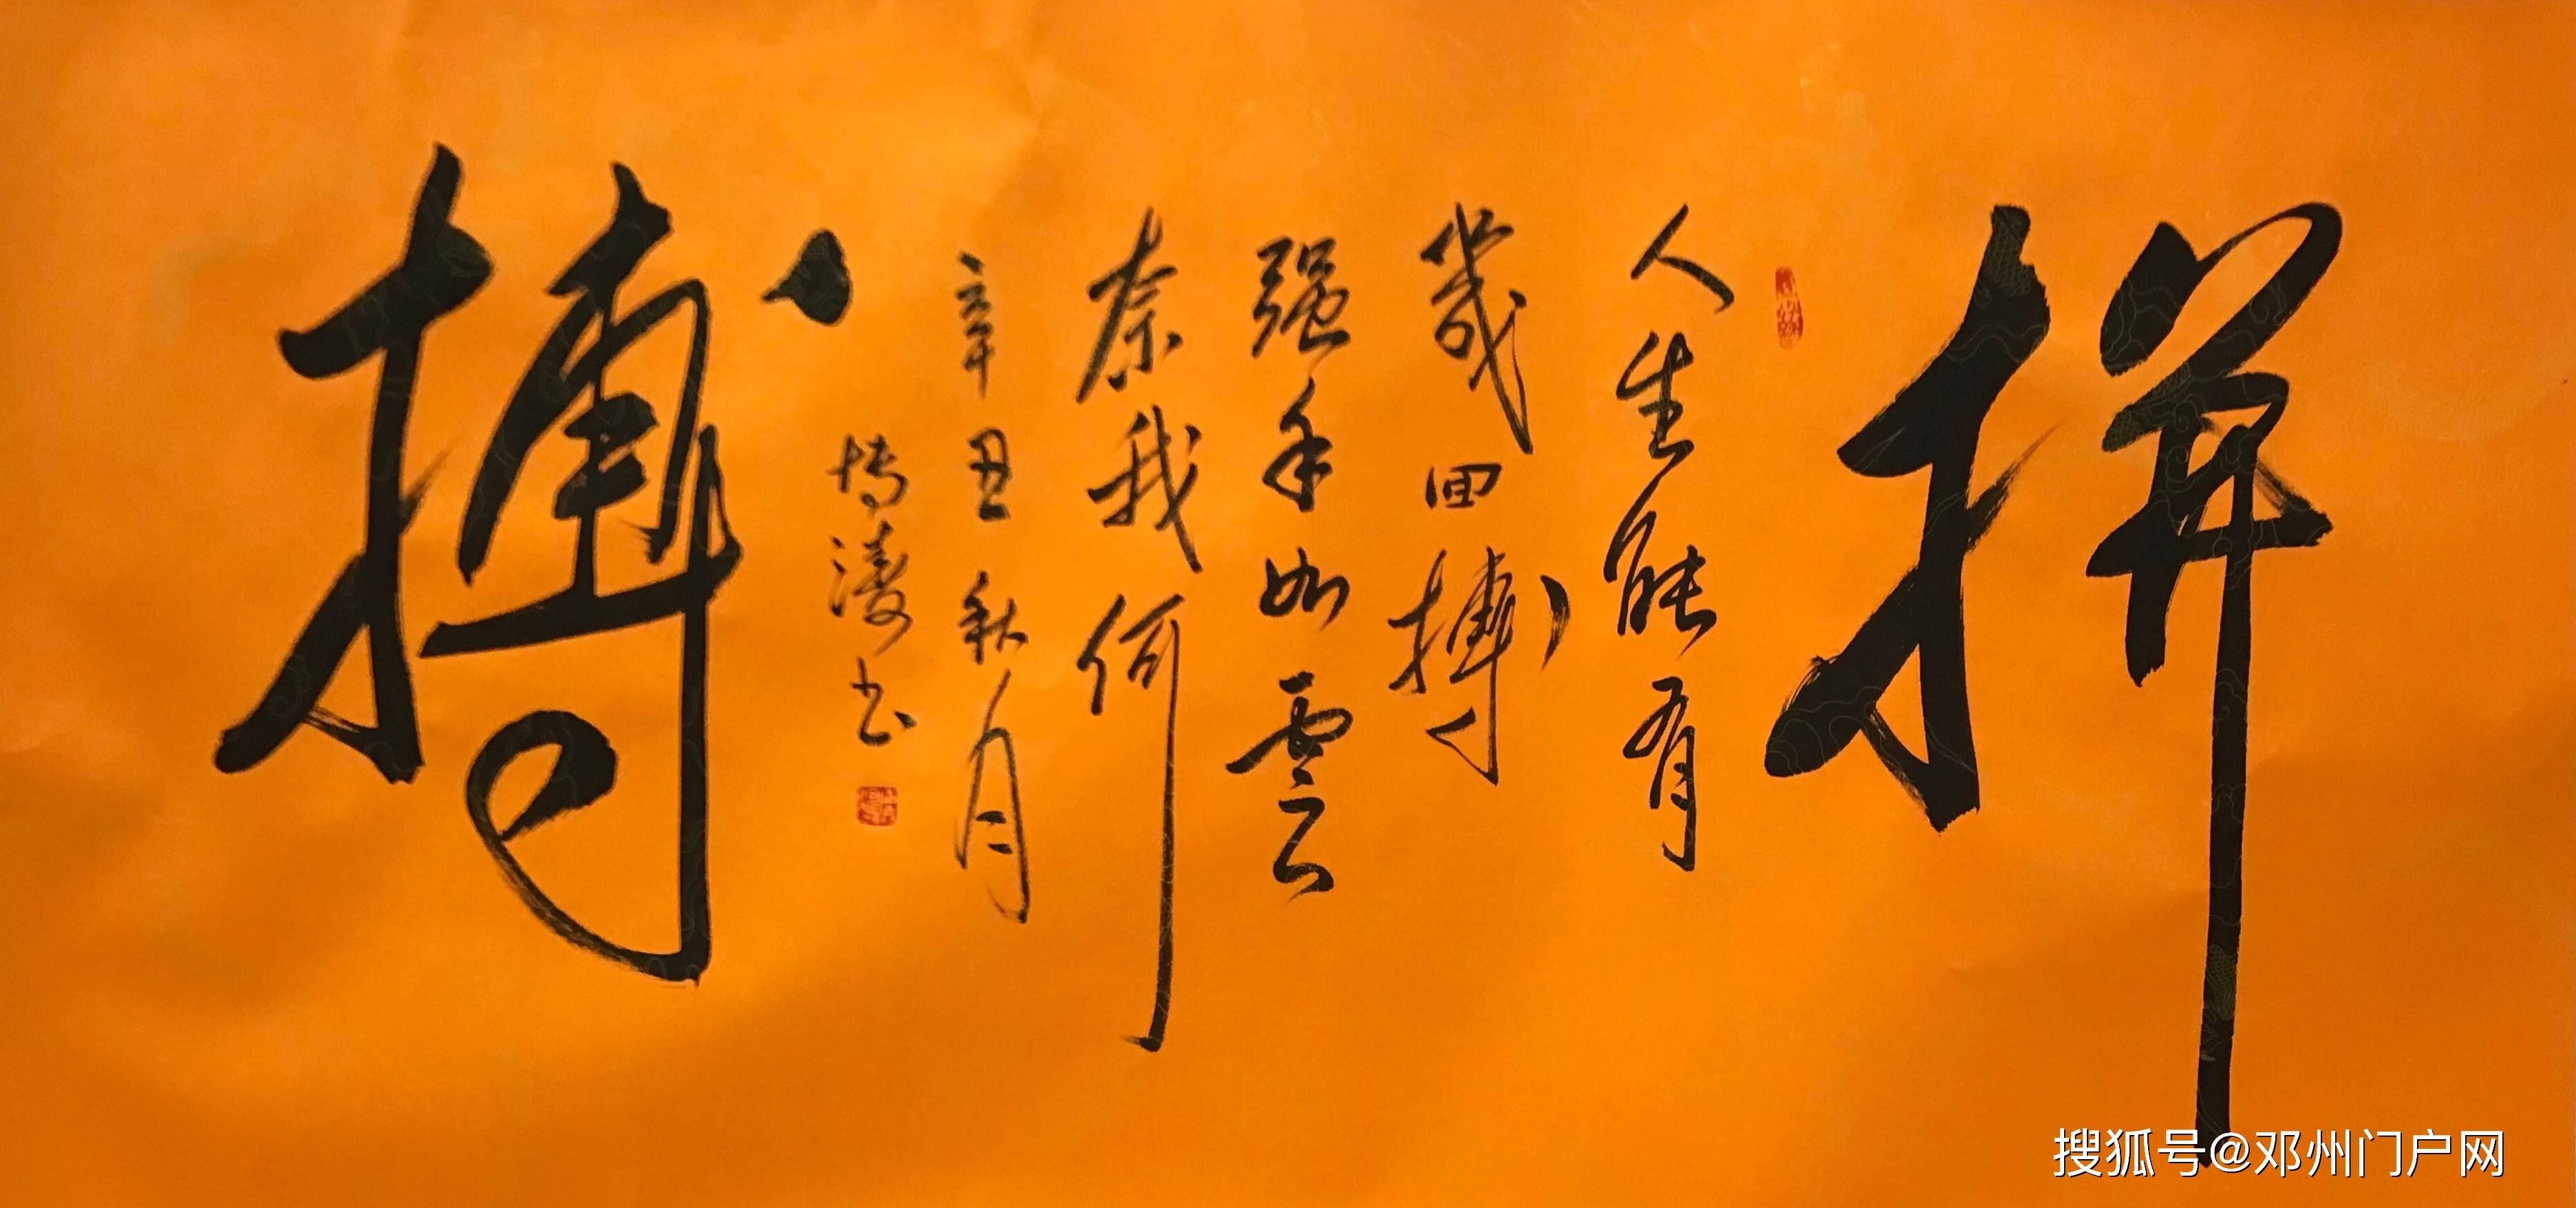 拼
人生能有
幾回搏
强手如雲
奈我何
辛丑秋月
博凌书
搏
搜狐号@邓州门户网